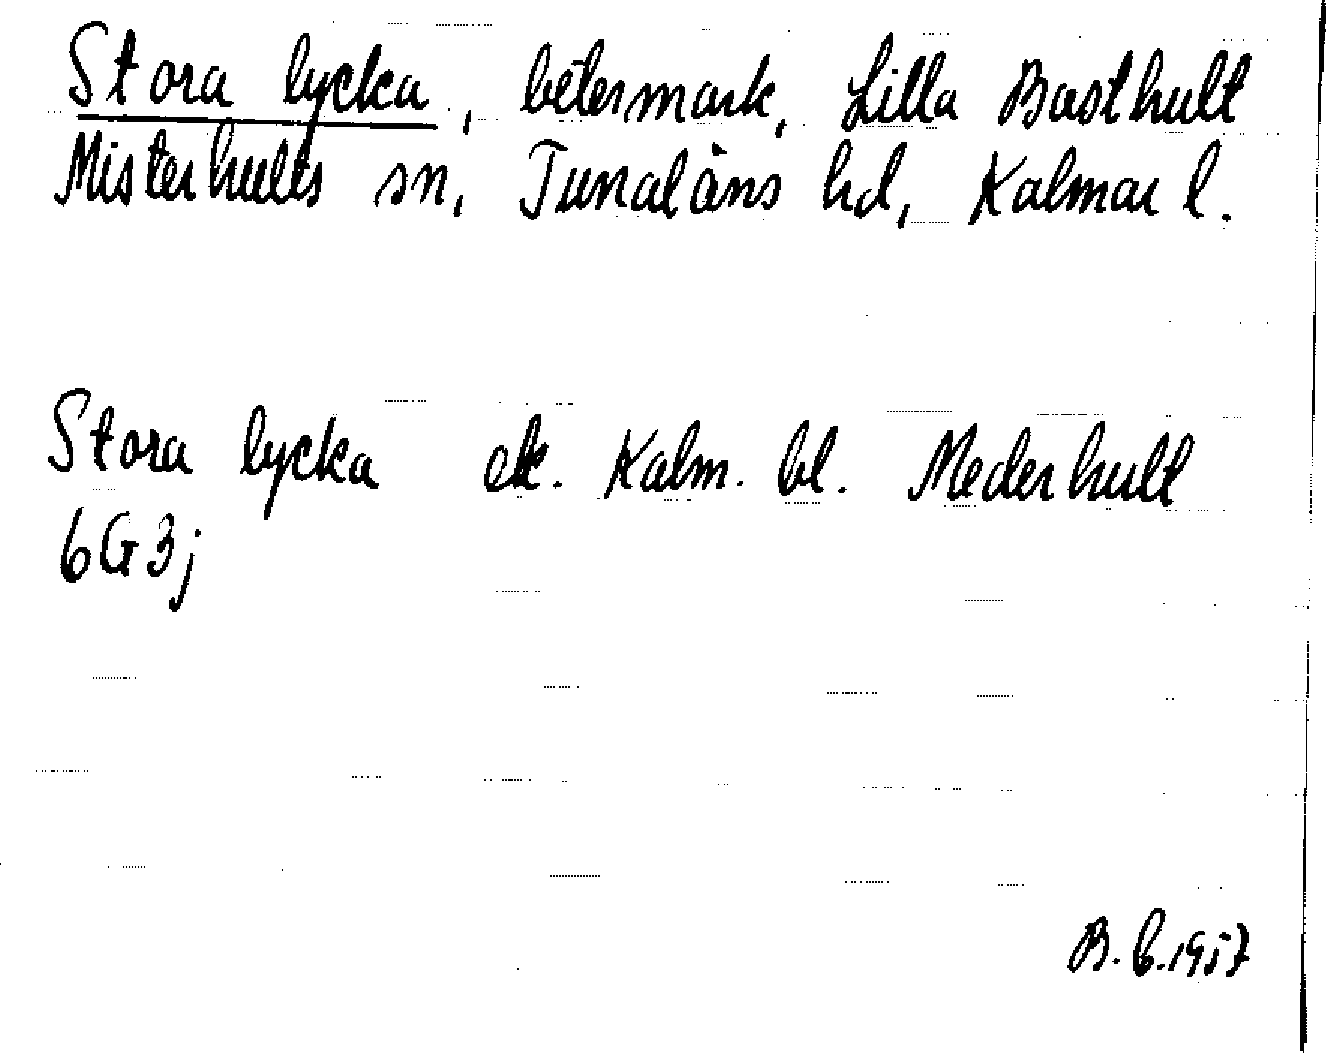 Stora lycka, betesmark, Lilla Basthult
Misterhults sn, Tunaläns hd, Kalmar l.
Stora lycka ek. Kalm. bl. Mederhult
6G3j
B. L. 1957